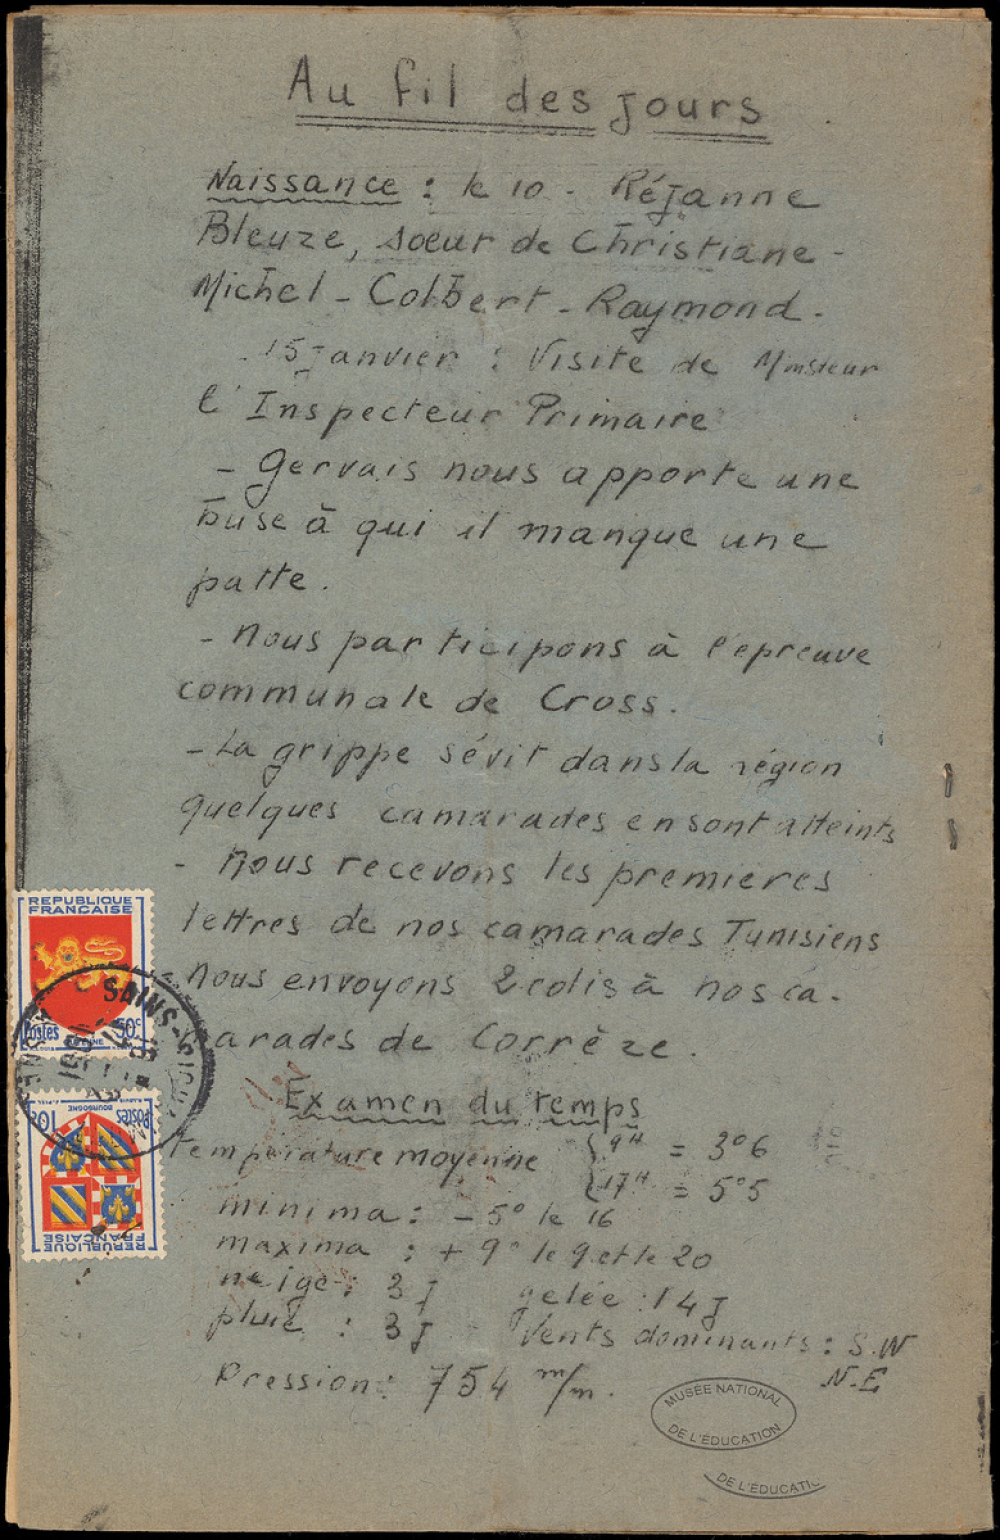 Au fil des jours
Naissance : le 10 - Réjanne
Bleuze, soeur de Christiane -
Michel - Colbert - Raymond.
15 Janvier : Visite de Monsieur
l'Inspecteur Primaire
- Gervais nous apporte une
buse à qui il manque une
patte.
- Nous participons à l'epreuve
communale de Cross.
- La grippe sévit dans la région
quelques camarades en sont atteints
- Nous recevons les premieres
lettres de nos camarades Tunisiens
- Nous envoyons 2 colis à nos ca-
marades de Corrèze.
Examen du temps
température moyenne { 9H = 3°6
{ 17H = 5°5
minima : - 5° le 16
maxima : + 9° le 9 et le 20
neige : 3 j gelée : 14 j
pluie : 3 j Vents dominants : S.W
N.E
Pression : 754 m/m.
REPUBLIQUE
FRANÇAISE
Postes 50c
SAINS-
10c Postes
BOURGOGNE
REPUBLIQUE
FRANÇAISE
MUSÉE NATIONAL
DE L'ÉDUCATION
DE L'ÉDUCATI